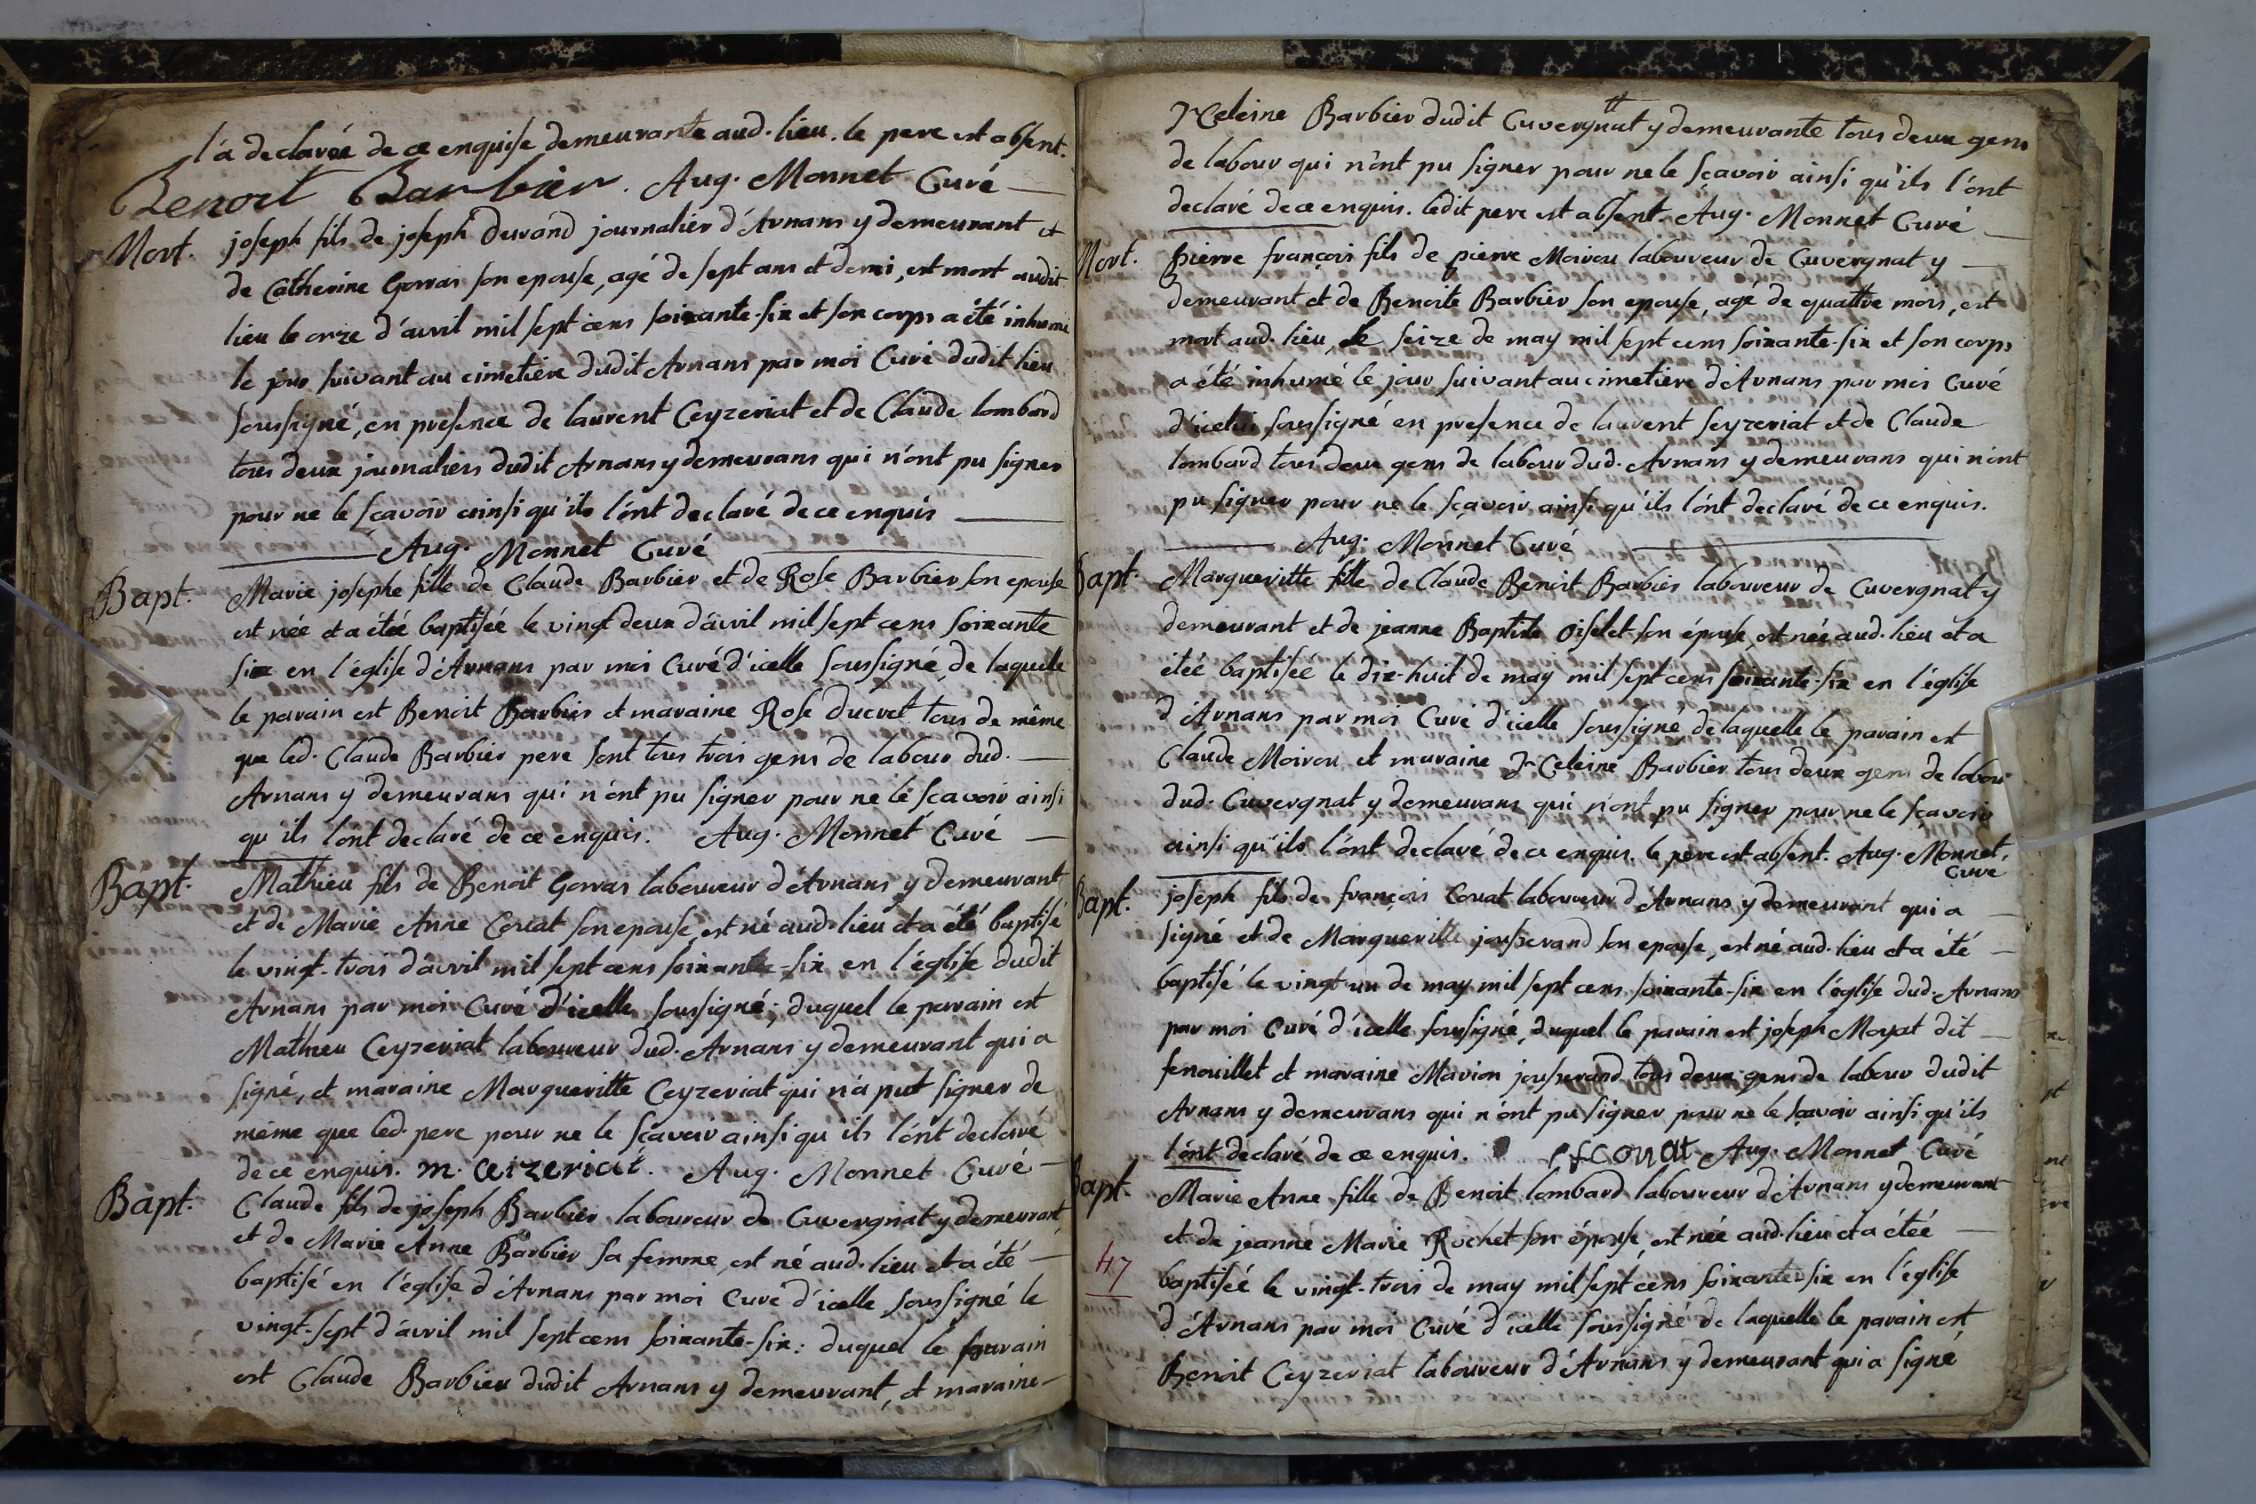 l'a declarée de ce enquise demeurante aud. lieu. le pere est absent.
Benoit Barbier. Aug. Monnet Curé
Mort. joseph fils de joseph Durand journalier d'Arnans y demeurant et
de Catherine Gorras son epouse, agé de sept ans et demi, est mort audit
lieu le onze d'avril mil sept cens soixante-six et son corps a été inhumé
le jour suivant au cimetiere dudit Arnans par moi Curé dudit lieu
soussigné, en presence de laurent Ceyzeriat et de Claude lombard
tous deux journaliers dudit Arnans y demeurans qui n'ont pu signer
pour ne le sçavoir ainsi qu'ils l'ont declaré de ce enquis
Aug. Monnet Curé
Bapt. Marie josephe fille de Claude Barbier et de Rose Barbier son epouse
est née et a étée baptisée le vingt deux d'avril mil sept cens soixante
six en l'église d'Arnans par moi Curé d'icelle soussigné, de laquelle
le parain est Benoit Barbier et maraine Rose ducret tous de même
que led. Claude Barbier pere sont tous trois gens de labour dud.
Arnans y demeurans qui n'ont pu signer pour ne le sçavoir ainsi
qu'ils l'ont declaré de ce enquis. Aug. Monnet Curé
Bapt. Mathieu fils de Benoit Gorras laboureur d'Arnans y demeurant
et de Marie Anne Corcat son epouse est né aud. lieu et a été baptisé
le vingt-trois d'avril mil sept cens soixante-six en l'église dudit
Arnans par moi Curé d'icelle soussigné; duquel le parrain est
Mathieu Ceyzeriat laboureur dud. Arnans y demeurant qui a
signé, et maraine Margueritte Ceyzeriat qui n'a put signer de
même que led. pere pour ne le sçavoir ainsi qu'ils l'ont declaré
de ce enquis. m. ceizeriat. Aug. Monnet Curé
Bapt. Claude fils de joseph Barbier laboureur de Cuvergnat y demeurant
et de Marie Anne Barbier sa femme, est né aud. lieu et a été
baptisé en l'église d'Arnans par moi Curé d'icelle soussigné le
vingt-sept d'avril mil sept cens soixante-six: duquel le parain
est Claude Barbier dudit Arnans y demeurant, et maraine
Barbier dudit Cuvergnat y demeurante tous deux gens
de labour qui n'ont pu signer pour ne le sçavoir ainsi qu'ils l'ont
declaré de ce enquis. ledit pere est absent. Aug. Monnet Curé
Mort. pierre françois fils de pierre Moirou laboureur de Cuvergnat y
demeurant et de Benoite Barbier son epouse, agé de quattre mois, est
mort aud. lieu, le seize de may mil sept cens soixante-six et son corps
a été inhumé le jour suivant au cimetiere d'Arnans par moi Curé
d'icelui soussigné en presence de laurent seyzeriat et de Claude
lombard tous deux gens de labour dud. Arnans y demeurans qui n'ont
pu signer pour ne le sçavoir ainsi qu'ils l'ont declaré de ce enquis.
Aug. Monnet Curé
Bapt. Margueritte fille de Claude Benoit Barbier laboureur de Cuvergnat y
demeurant et de jeanne Baptiste oiselet son épouse, est née aud. lieu et a
étée baptisée le dix-huit de may mil sept cens soixante-six en l'église
d'Arnans par moi Curé d'icelle soussigné de laquelle le parain est
Claude Moirou et maraine Barbier tous deux gens de labour
dud. Cuvergnat y demeurans qui n'ont pu signer pour ne le sçavoir
ainsi qu'ils l'ont declaré de ce enquis. le pere est absent. Aug. Monnet.
Curé
Bapt. joseph fils de françois Couat laboureur d'Arnans y demeurant qui a
signé et de Margueritte jousserand son epouse, est né aud. lieu et a été
baptisé le vingt-un de may mil sept cens soixante-six en l'église dud. Arnans
par moi Curé d'icelle soussigné, duquel le parain est joseph Moyat dit
fenouillet et maraine Marion jousserand tous deux gens de labour dudit
Arnans y demeurans qui n'ont pu signer pour ne le sçavoir ainsi qu'ils
l'ont declaré de ce enquis. couat Aug. Monnet Curé
Bapt. Marie Anne fille de Benoit lombard laboureur d'Arnans y demeurant
et de jeanne Marie Rochet son épouse est née aud. lieu et a étée
47
baptisée le vingt-trois de may mil sept cens soixante-six en l'église
d'Arnans par moi Curé d'icelle soussigné de laquelle le parain est
Benoit Ceyzeriat laboureur d'Arnans y demeurant qui a signé